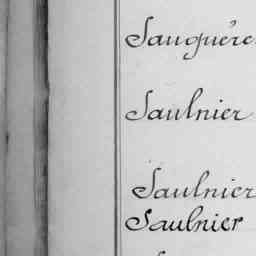 Sauguère
Saulnier
Saulnier
Saulnier